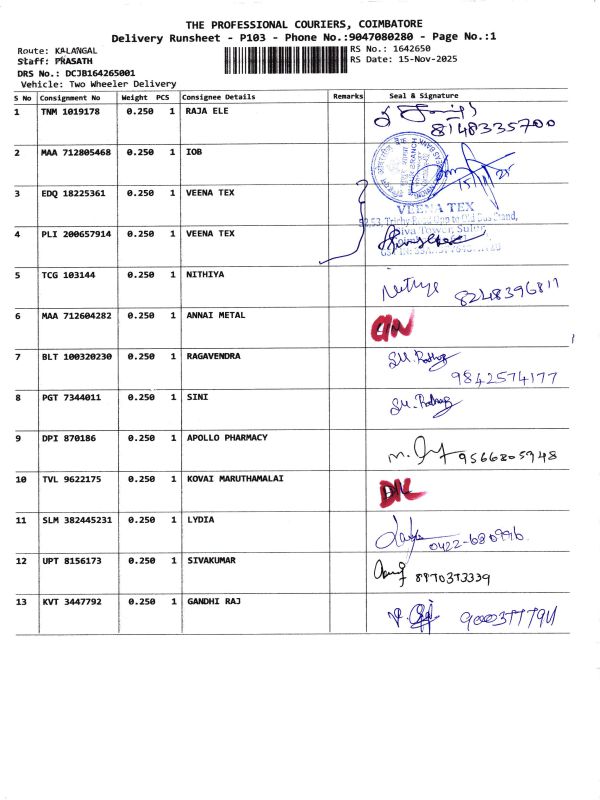 THE PROFESSIONAL COURIERS, COIMBATORE
Delivery Runsheet - P103 - Phone No.:9047080280 - Page No.:1
Route: KALANGAL
RS No.: 1642650
Staff: PRASATH
RS Date: 15-Nov-2025
DRS No.: DCJB164265001
Vehicle: Two Wheeler Delivery
S No Consignment No Weight PCS Consignee Details Remarks Seal & Signature
1 TNM 1019178 0.250 1 RAJA ELE
8148335700
2 MAA 712805468 0.250 1 IOB
15/11/25
3 EDQ 18225361 0.250 1 VEENA TEX
VEENA TEX
4 PLI 200657914 0.250 1 VEENA TEX
5 TCG 103144 0.250 1 NITHIYA
Nithya 8248396811
6 MAA 712604282 0.250 1 ANNAI METAL
7 BLT 100320230 0.250 1 RAGAVENDRA
9842574177
8 PGT 7344011 0.250 1 SINI
9 DPI 870186 0.250 1 APOLLO PHARMACY
9566805948
10 TVL 9622175 0.250 1 KOVAI MARUTHAMALAI
11 SLM 382445231 0.250 1 LYDIA
0422-680996
12 UPT 8156173 0.250 1 SIVAKUMAR
8870373339
13 KVT 3447792 0.250 1 GANDHI RAJ